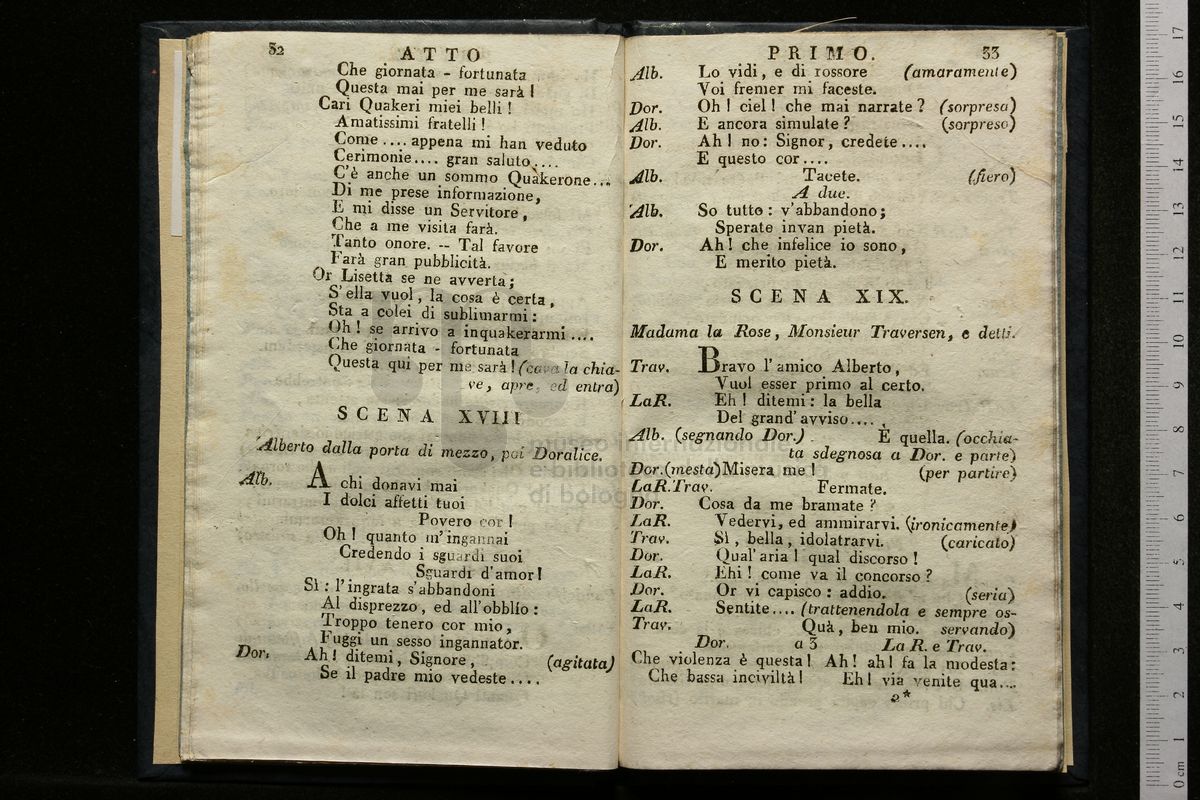 32
ATTO
Che giornata - fortunata
Questa mai per me sarà!
Cari Quakeri miei belli!
Amatissimi fratelli!
Come .... appena mi han veduto
Cerimonie.... gran saluto....
C'è anche un sommo Quakerone...
Di me prese informazione,
E mi disse un Servitore,
Che a me visita farà.
Tanto onore. -- Tal favore
Farà gran pubblicità.
Or Lisetta se ne avverta;
S'ella vuol, la cosa è certa,
Sta a colei di sublimarmi:
Oh! se arrivo a inquakerarmi....
Che giornata - fortunata
Questa qui per me sarà! (cava la chia-
ve, apre, ed entra)
SCENA XVIII
Alberto dalla porta di mezzo, poi Doralice.
Alb. A chi donavi mai
I dolci affetti tuoi
Povero cor!
Oh! quanto m'ingannai
Credendo i sguardi suoi
Sguardi d'amor!
Sì: l'ingrata s'abbandoni
Al disprezzo, ed all'obblìo:
Troppo tenero cor mio,
Fuggi un sesso ingannator.
Dor. Ah! ditemi, Signore, (agitata)
Se il padre mio vedeste....
PRIMO.
33
Alb. Lo vidi, e di rossore (amaramente)
Voi fremer mi faceste.
Dor. Oh! ciel! che mai narrate? (sorpresa)
Alb. E ancora simulate? (sorpreso)
Dor. Ah! no: Signor, credete....
E questo cor....
Alb. Tacete. (fiero)
A due.
Alb. So tutto: v'abbandono;
Sperate invan pietà.
Dor. Ah! che infelice io sono,
E merito pietà.
SCENA XIX.
Madama la Rose, Monsieur Traversen, e detti.
Trav. Bravo l'amico Alberto,
Vuol esser primo al certo.
LaR. Eh! ditemi: la bella
Del grand'avviso....
Alb. (segnando Dor.) E quella. (occhia-
ta sdegnosa a Dor. e parte)
Dor. (mesta) Misera me! (per partire)
LaR. Trav. Fermate.
Dor. Cosa da me bramate?
LaR. Vedervi, ed ammirarvi. (ironicamente)
Trav. Sì, bella, idolatrarvi. (caricato)
Dor. Qual'aria! qual discorso!
LaR. Ehi! come va il concorso?
Dor. Or vi capisco: addio. (seria)
LaR. Sentite.... (trattenendola e sempre os-
Trav. Quà, ben mio. servando)
Dor. a 3 La R. e Trav.
Che violenza è questa! Ah! ah! fa la modesta:
Che bassa inciviltà! Eh! via venite qua....
2*
museo internazionale
e biblioteca della musica
di bologna
17
16
15
14
13
12
11
10
9
8
7
6
5
4
3
2
1
0 cm